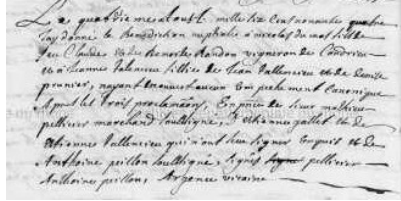 Le quatrie me aoust mille six cent nonante quatre
Jay donné la Benediction nuptiale a nicolas du mas fils de
feu Claude et de Benoite Randon vigneron de Condrieu
et a Jeanne Valencieu fillie de Jean Vallencieu et de denise
prunier, nayant trouvé aucun Empechement Canonique
Apres les trois proclamaõns, En pnce de Sieur mathieu
pellissier marchand soubsigné, d'Estienne gallet et de
Estienne Vallencieu qui n'ont sceu signer Enquis et de
Anthoine peillon soubsigné, signés pellissier
Anthoine peillon, Argence vicaire